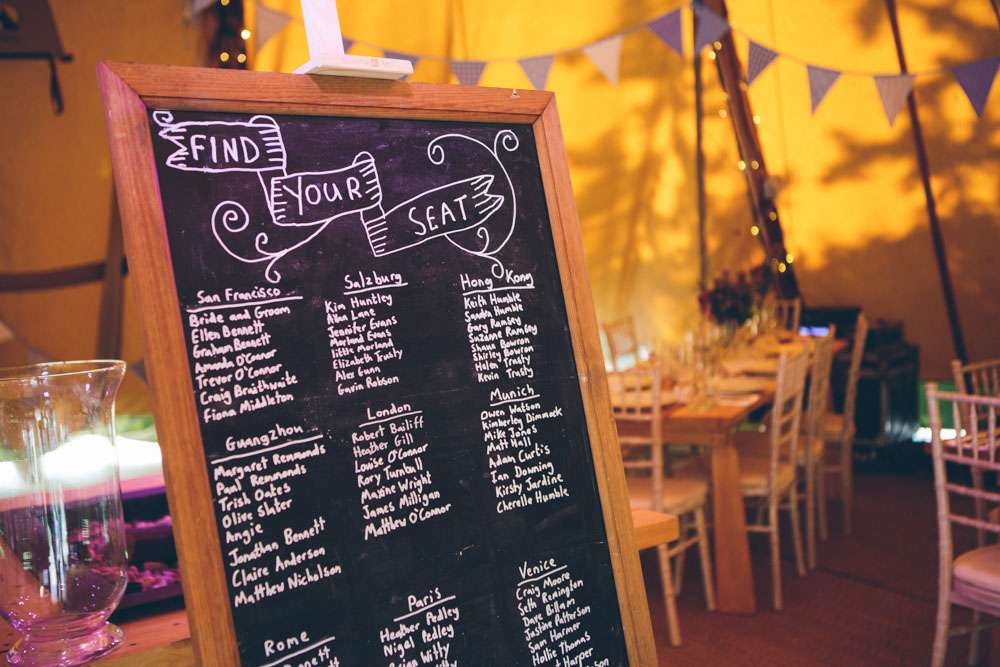 FIND
YOUR
SEAT
San Francisco
Bride and Groom
Ellen Bennett
Graham Bennett
Amanda O'Connor
Trevor O'Connor
Craig Braithwaite
Fiona Middleton
Salzburg
Kim Huntley
Allan Lane
Jennifer Evans
Morland Evans
little Morland
Elizabeth Trusty
Alex Gunn
Gavin Robson
Hong Kong
Keith Humble
Sandra Humble
Gary Ramsey
Suzanne Ramsay
Shaun Bowron
Shirley Bowron
Helen Trusty
Kevin Trusty
Guangzhou
Margaret Remmonds
Paul Remmonds
Trish Oates
Olive Slater
Angie
Jonathan Bennett
Claire Anderson
Matthew Nicholson
London
Robert Bailiff
Heather Gill
Louise O'Connor
Rory Turnbull
Maxine Wright
James Milligan
Matthew O'Connor
Munich
Owen Watson
Kimberley Dimmack
Mike Jones
Matt Hall
Adam Curtis
Ian Downing
Kirsty Jardine
Cherelle Humble
Rome
Bennett
Paris
Heather Pedley
Nigel Pedley
Brian Witty
Venice
Craig Moore
Seth Remington
Dave Billam
Justine Patterson
Sam Harmer
Hollie Thomas
Harper